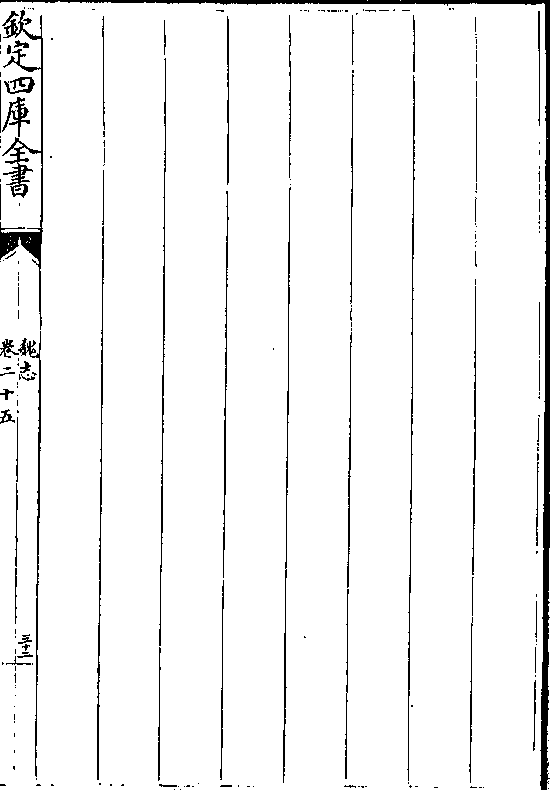 欽定四庫全書
魏志
卷二十五
三十二